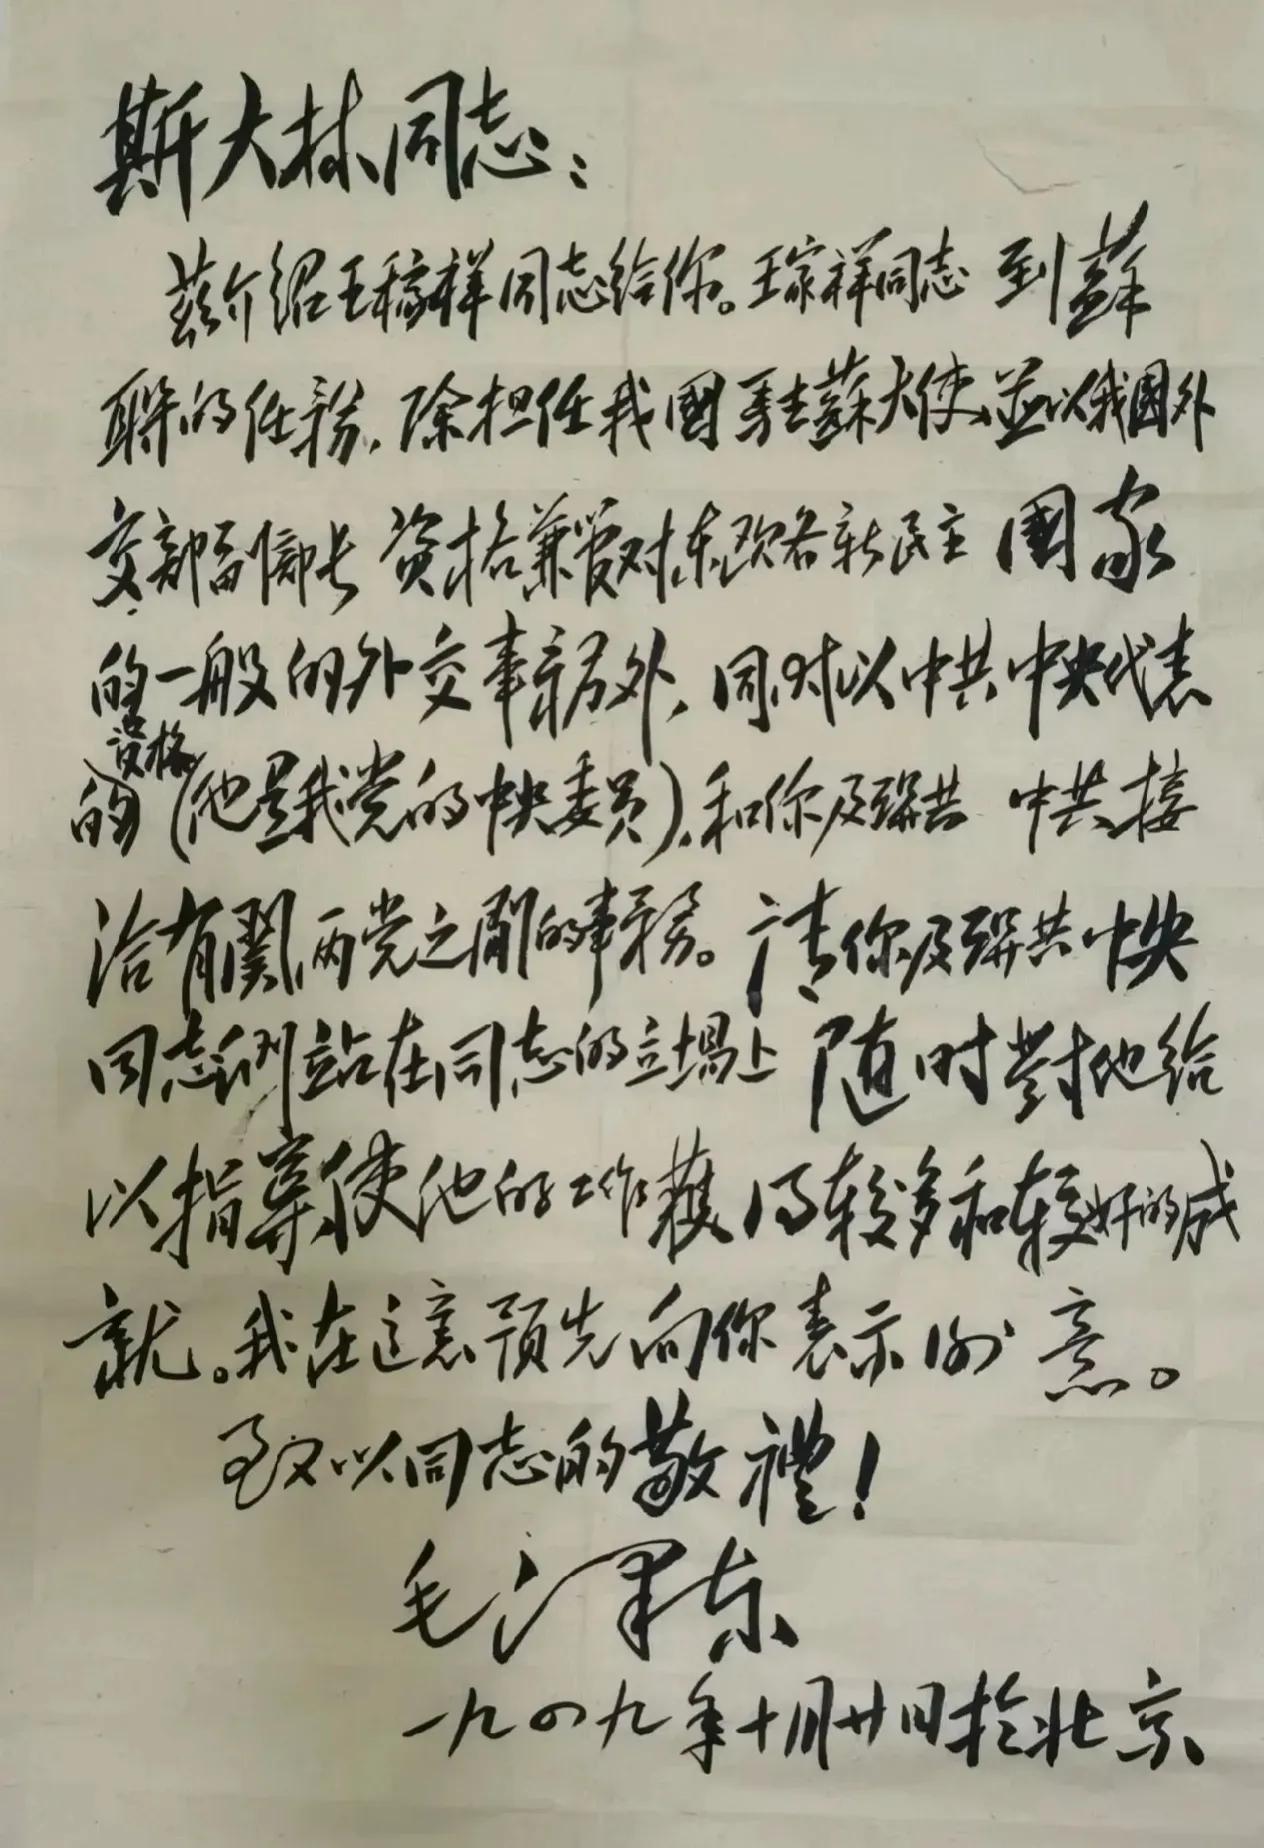 斯大林同志：
兹介绍王稼祥同志给你。王家祥同志到蘇
联的任務，除担任我國驻蘇大使、並以我國外
交部副部长資格兼管对东欧各新民主國家
的一般的外交事務外，同时以中共中央代表
資格
的（他是我党的中央委员），和你及联共中共接
洽有関两党之间的事務。请你及联共中央
同志们站在同志的立場上随时對他给
以指导，使他的工作获得较多和较好的成
就。我在这裏预先向你表示谢意。
致以同志的敬禮！
毛泽东
一九四九年十月廿日於北京